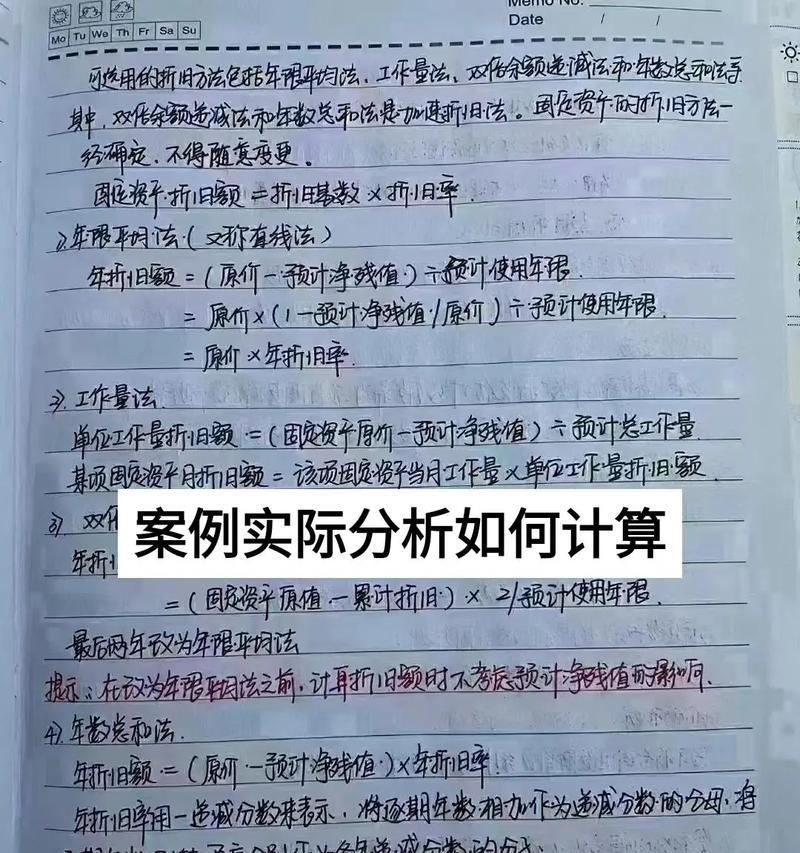 Memo No.
Mo Tu We Th Fr Sa Su
Date / /
可选用的折旧方法包括年限平均法、工作量法、双倍余额递减法和年数总和法等
其中,双倍余额递减法和年数总和法是加速折旧法。固定资产的折旧方法一
经确定,不得随意变更。
固定资产折旧额=折旧基数×折旧率.
1)年限平均法(又称直线法)
年折旧额=(原价-预计净残值)÷预计使用年限.
=原价×(1-预计净残值/原价)÷预计使用年限.
=原价×年折旧率.
2)工作量法.
单位工作量折旧额=(固定资产原价-预计净残值)÷预计总工作量.
某项固定资产月折旧额=该项固定资产当月工作量×单位工作量折旧额.
3)双
案例实际分析如何计算
年折
=(固定资产原值-累计折旧)×2/预计使用年限.
最后两年改为年限平均法
提示:在改为年限平均法之前,计算折旧额时不考虑预计净残值的影响.
4)年数总和法.
年折旧额=(原价-预计净残值)×年折旧率.
年折旧率用一递减分数来表示,将逐期年数相加作为递减分数的分母,将